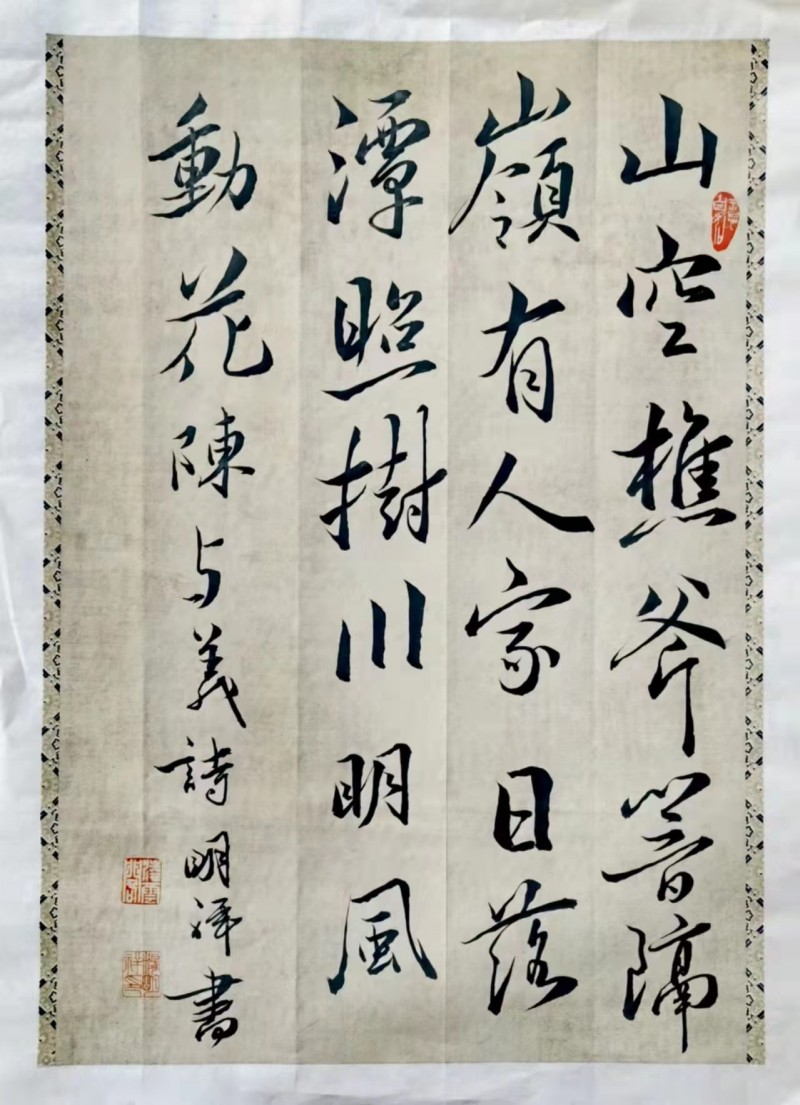 山空樵斧響隔
嶺有人家日落
潭照樹川明風
動花陳与義詩明祥書